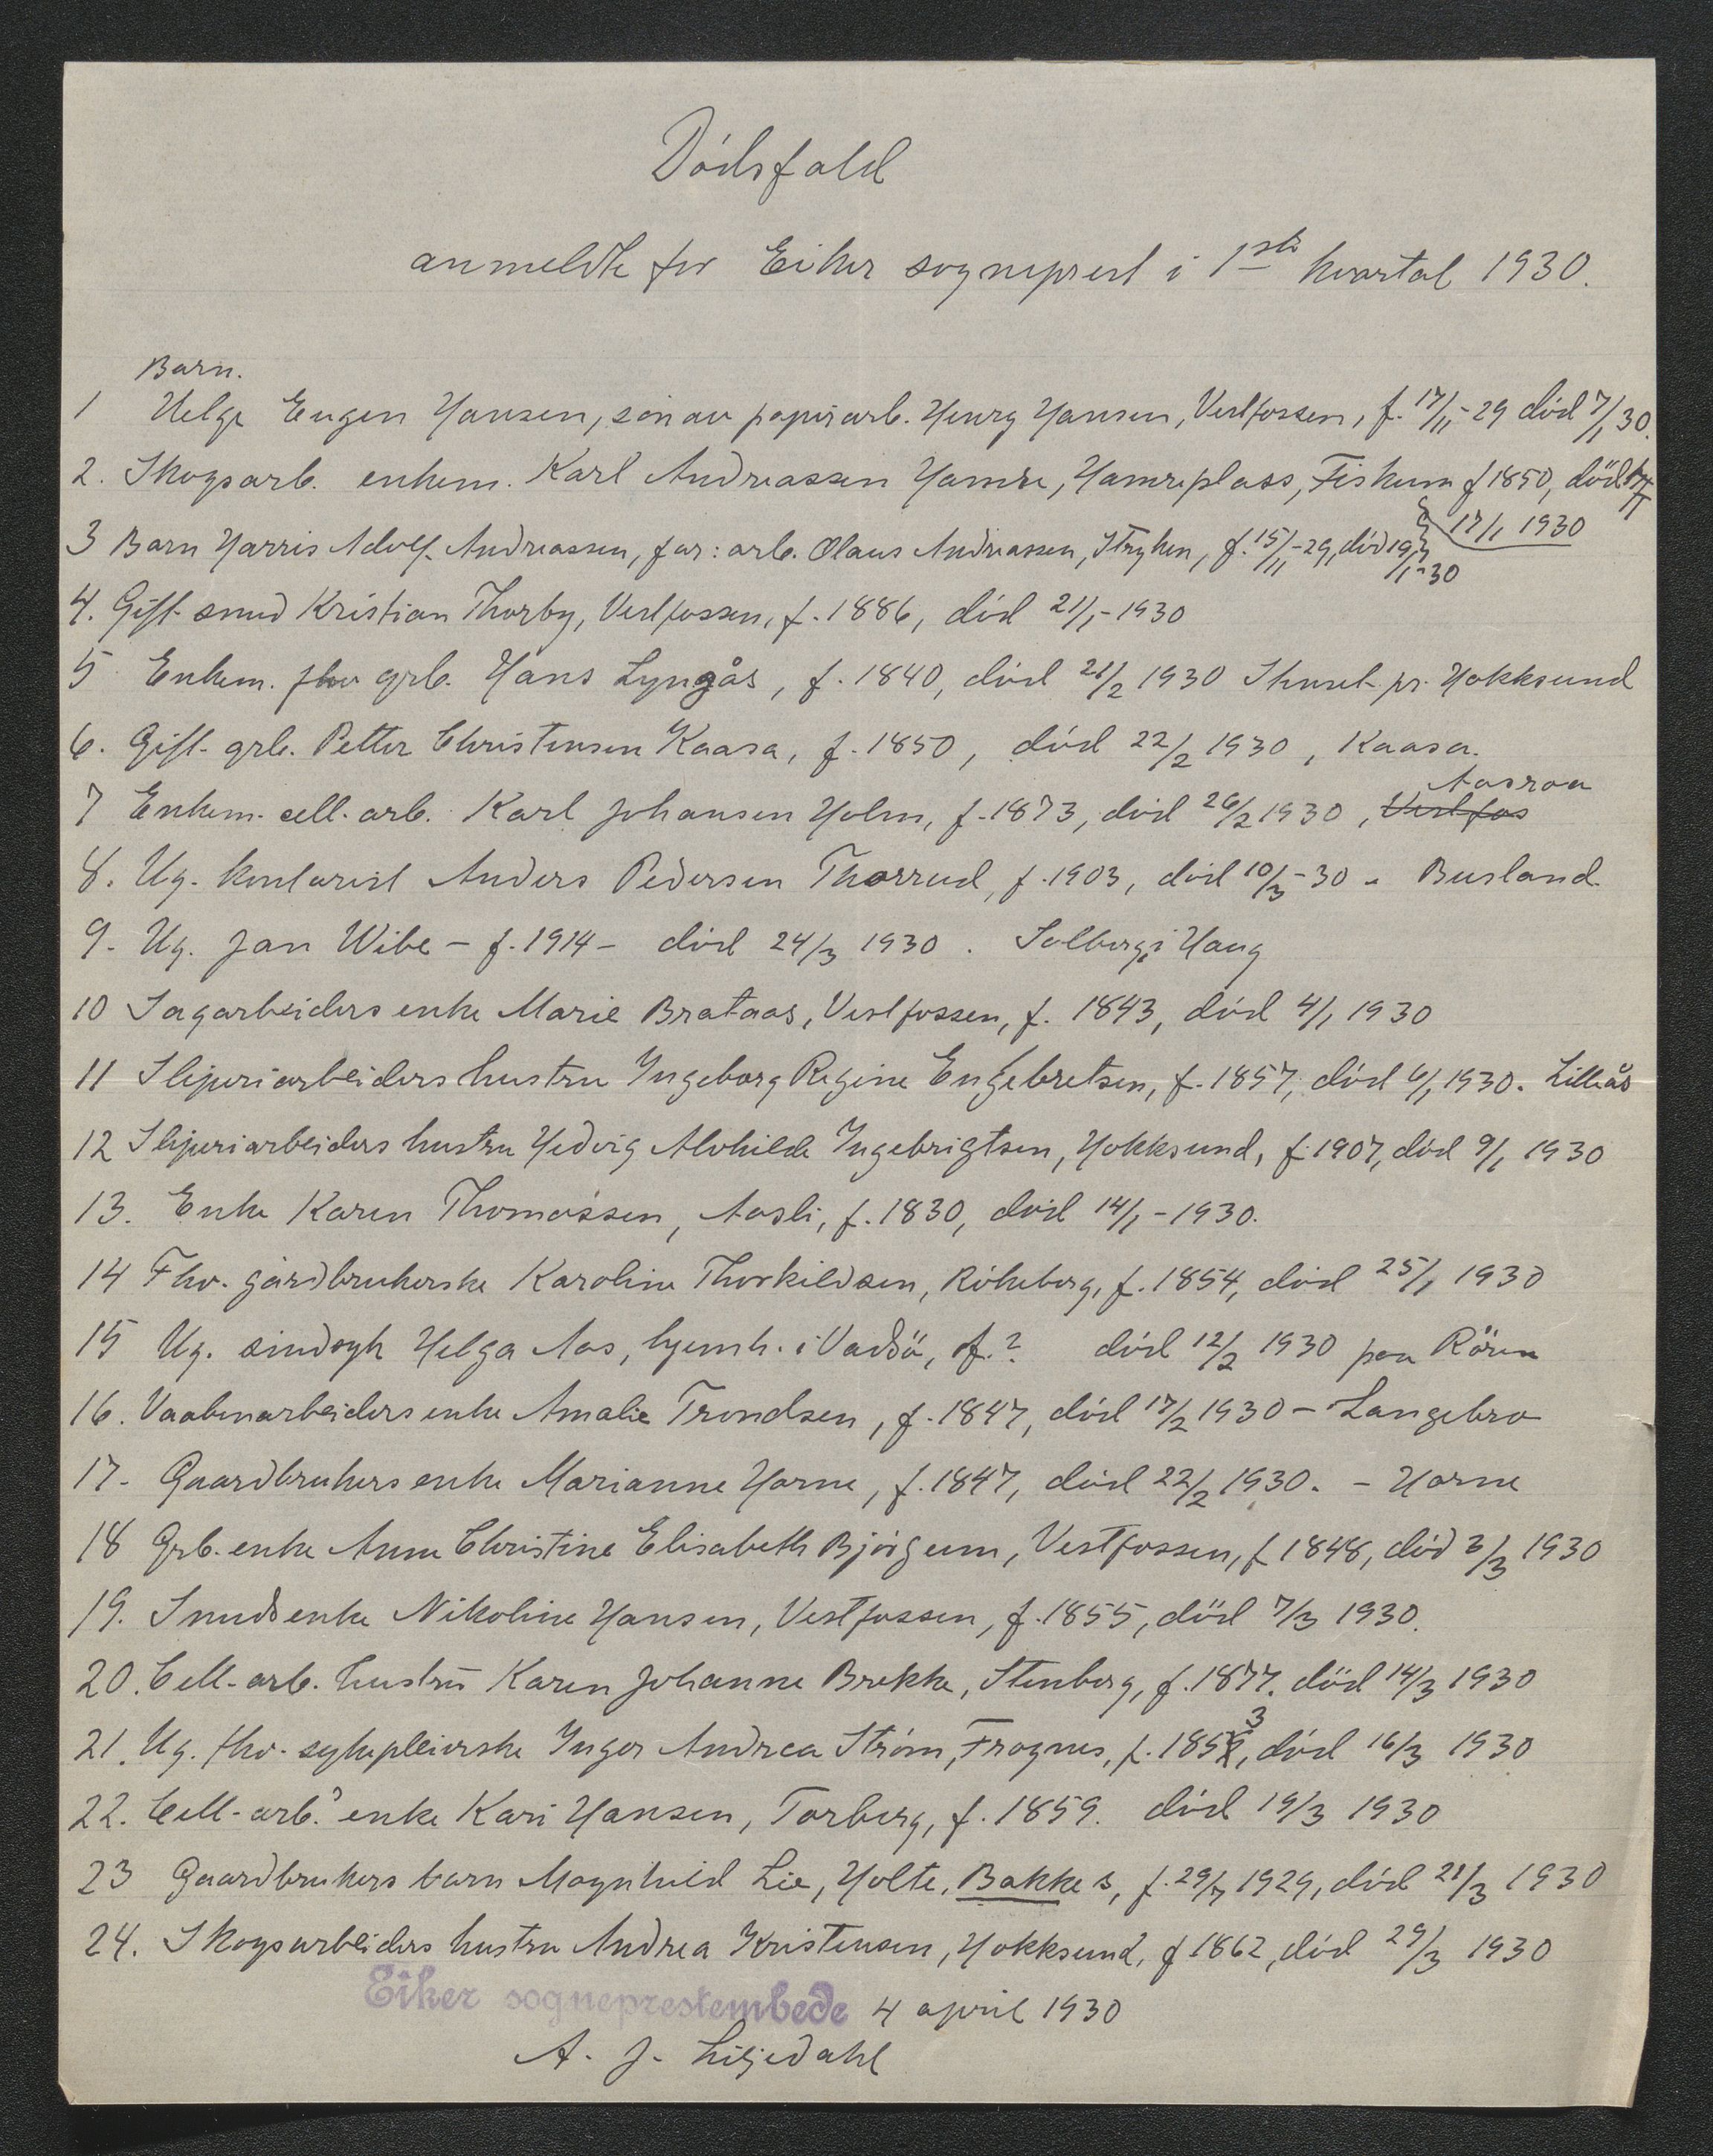 Dödsfald
anmeldte for Eiker sogneprest i 1ste kvartal 1930.
Barn.
1 Helge Eugen Hansen, sön av papirarb. Henry Hansen, Vestfossen, f. 17/11-29 död 7/1 30.
2. Skogsarb. enkem. Karl Andreassen Hamre, Hamreplass, Fiskum f 1850, död
17/1 1930
3 Barn Harris Adolf Andreassen, far: arb. Olaus Andreassen, Stryken, f. 15/11-29, död 19/1-30
4. Gift smed Kristian Thorby, Vestfossen, f. 1886, död 21/1-1930
5 Enkem. fhv grb. Hans Lyngås, f. 1840, död 21/2 1930 pr. Hokksund
6. Gift grb. Petter Christensen Kaasa, f. 1850, död 22/2 1930, Kaasa.
Aasroa
7 Enkem. cell. arb. Karl Johansen Holm, f. 1873, död 26/2 1930, Vestfos
8. Ug. kontorist Anders Pedersen Thorrud, f. 1903, död 10/3-30 - Busland.
9. Ug. Jan Wibe - f. 1914 - död 24/3 1930. Solberg i Haug
10 Sagarbeiders enke Marie Brataas, Vestfossen, f. 1843, död 4/1 1930
11 Sliperiarbeiders hustru Ingeborg Regine Engebretsen, f. 1857, död 6/1 1930. Lilleås
12 Sliperiarbeiders hustru Hedvig Alvhilde Ingebrigtsen, Hokksund, f. 1907, död 9/1 1930
13. Enke Karen Thomassen, Aasli, f. 1830, död 14/1-1930.
14 Fhv. gårdbrukerske Karoline Thorkildsen, Rökeberg, f. 1854, död 25/1 1930
15 Ug. sindsyk Helga Aas, hjemh. i Vadsö, f. ? död 12/2 1930 paa Rören
16. Vaabenarbeiders enke Amalie Trondsen, f. 1847, död 17/2 1930 - Langebro
17. Gaardbrukers enke Marianne Horne, f. 1847, död 22/2 1930. - Horne
18 Grb. enke Anne Christine Elisabeth Björgum, Vestfossen, f 1848, död 3/3 1930
19. Smeds enke Nikoline Hansen, Vestfossen, f. 1855, död 7/3 1930.
20. Cell-arb. hustru Karen Johanne Brekke, Stenberg, f. 1877. död 14/3 1930
21. Ug. fhv. sykepleierske Inger Andrea Ström, Frognes, f. 1853, död 16/3 1930
22. Cell-arb.s enke Kari Hansen, Torberg, f. 1859. död 19/3 1930
23 Gaardbrukers barn Magnhild Lie, Holte, Bakke s, f. 29/7 1929, död 21/3 1930
24. Skogsarbeiders hustru Andrea Kristensen, Hokksund, f 1862, död 29/3 1930
Eiker sogneprestembede 4 april 1930
A. J. Liljedahl